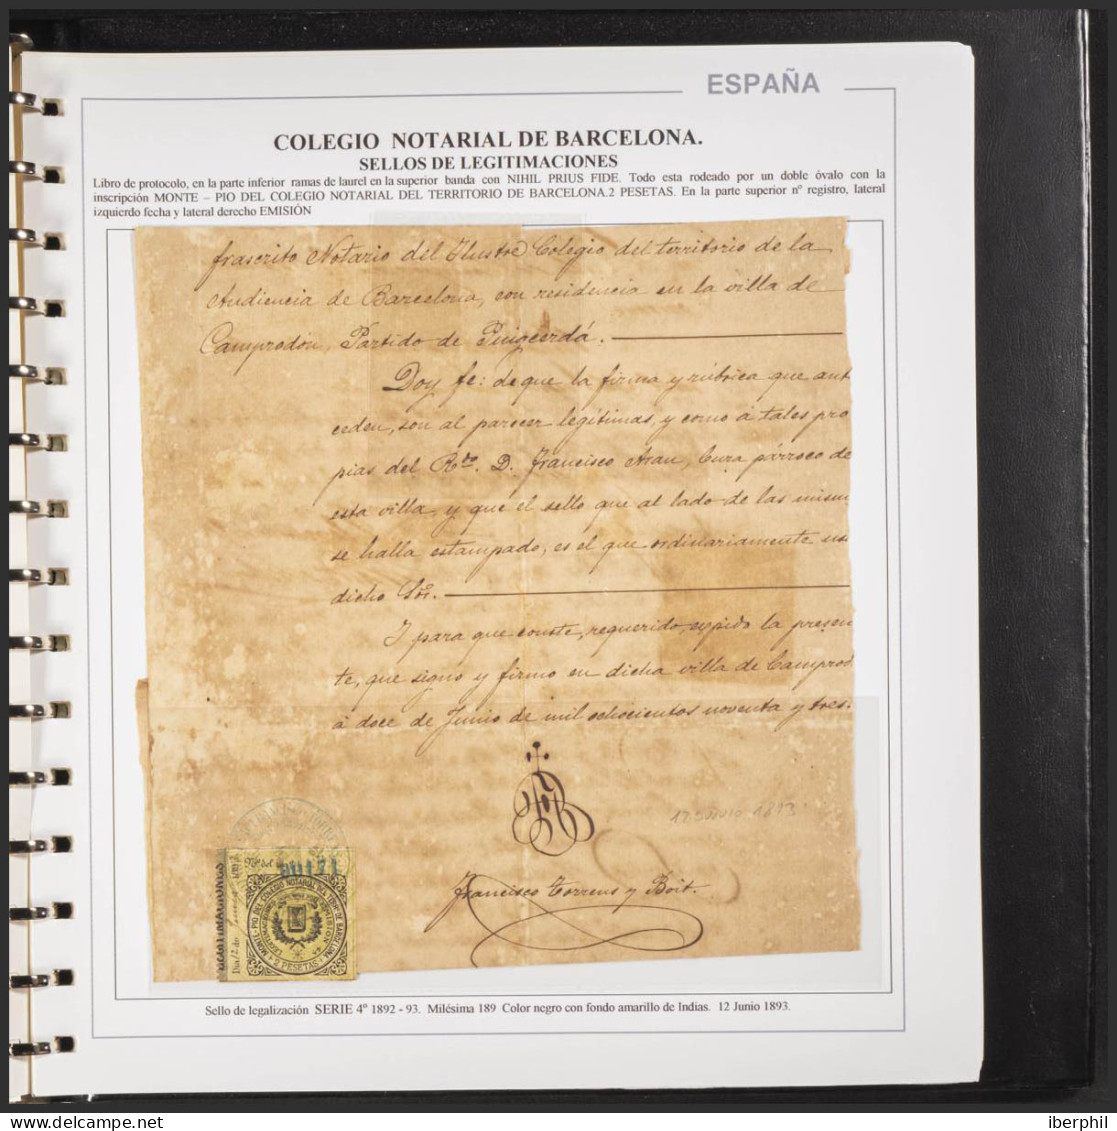 ESPAÑA
COLEGIO NOTARIAL DE BARCELONA.
SELLOS DE LEGITIMACIONES
Libro de protocolo, en la parte inferior ramas de laurel en la superior banda con NIHIL PRIUS FIDE. Todo esta rodeado por un doble óvalo con la
inscripción MONTE – PIO DEL COLEGIO NOTARIAL DEL TERRITORIO DE BARCELONA.2 PESETAS. En la parte superior nº registro, lateral
izquierdo fecha y lateral derecho EMISIÓN
frascrito Notario del Ilustre Colegio del territorio de la
Audiencia de Barcelona, con residencia en la villa de
Camprodon, Partido de Puigcerdá.
Doy fe: de que la firma y rúbrica que ant
ceden, son al parecer legítimas, y como á tales pro
pias del Rdo. D. Francisco Aran, Cura párroco de
esta villa, y que el sello que al lado de las mism
se halla estampado, es el que ordinariamente us
dicho Sor.
Y para que conste, requerido, expido la presen
te, que signo y firmo en dicha villa de Camprod
á doce de Junio de mil ochocientos noventa y tres.
12 Junio 1893
Francisco Torrens y Boit.
Nº del
Dia 12 de
MONTE-PIO DEL COLEGIO NOTARIAL DEL TERR. DE BARCELONA
LEGITIMACIONES
EMISION 4ª
2 PESETAS
Sello de legalización SERIE 4º 1892 - 93. Milésima 189 Color negro con fondo amarillo de Indias. 12 Junio 1893.
iberphil